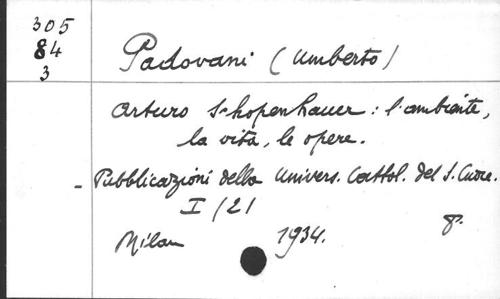 305
84
3
Padovani (Umberto)
Arturo Schopenhauer: l'ambiente,
la vita, le opere.
- Pubblicazioni della Univers. Cattol. del S. Cuore.
I /21
Milan 1934. 8°.